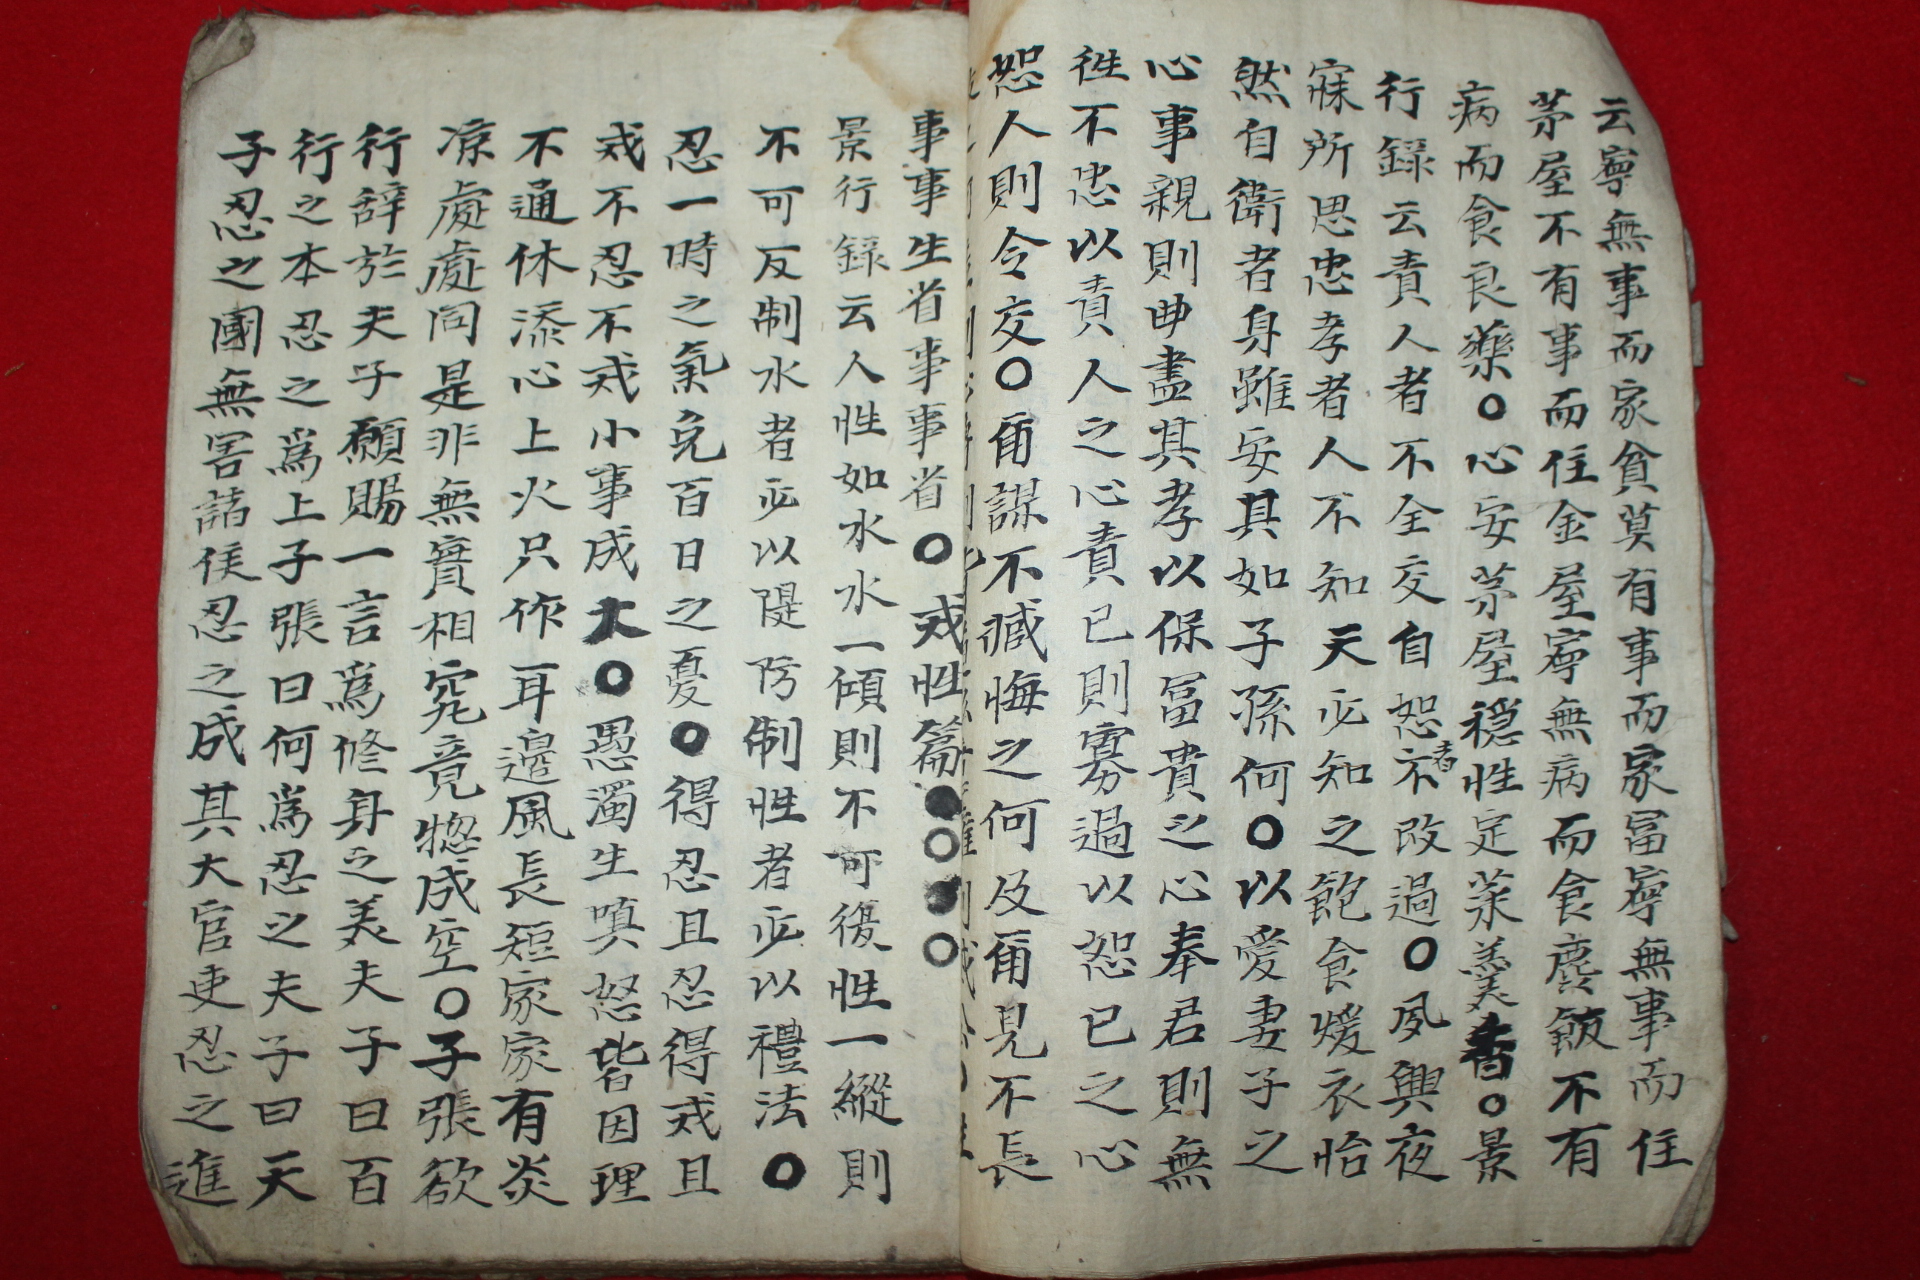 云寧無事而家貧莫有事而家冨寧無事而住
茅屋不有事而住金屋寧無病而食麤飯不有
病而食良藥○心安茅屋穩性定菜羹香○景
行錄云責人者不全交自恕者不改過○夙興夜
寐所思忠孝者人不知天必知之飽食煖衣怡
然自衛者身雖安其如子孫何○以愛妻子之
心事親則曲盡其孝以保冨貴之心奉君則無
徃不忠以責人之心責已則寡過以恕已之心
恕人則令交○爾謀不臧悔之何及爾見不長
事事生省事事事省○戒性篇●○●○
景行錄云人性如水水一傾則不可復性一縱則
不可反制水者必以隄防制性者必以禮法○
忍一時之氣免百日之憂○得忍且忍得戒且
戒不忍不戒小事成大○愚濁生嗔怒皆因理
不通休添心上火只作耳邊風長短家家有炎
凉處處同是非無實相究竟惣成空○子張欲
行辭於夫子願賜一言爲修身之美夫子曰百
行之本忍之爲上子張曰何爲忍之夫子曰天
子忍之國無害諸侯忍之成其大官吏忍之進